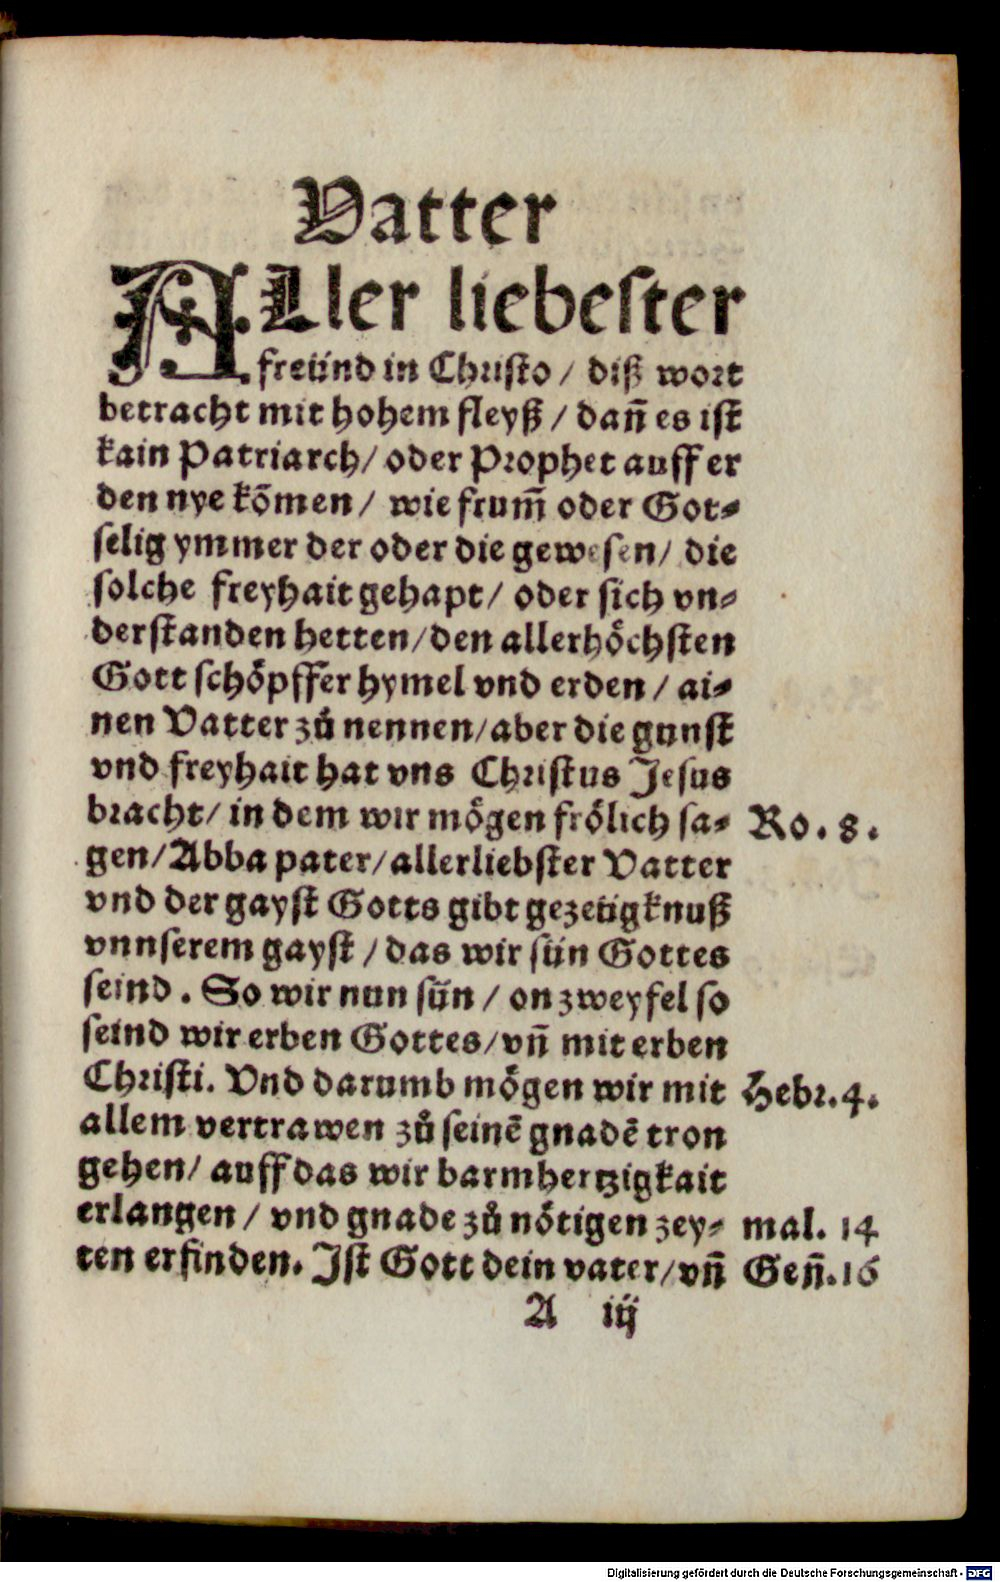 Vatter
ALler liebester
freünd in Christo / diß wort
betracht mit hohem fleyß / dañ es ist
kain Patriarch / oder Prophet auff er
den nye kõmen / wie frum̃ oder Got⸗
selig ymmer der oder die gewesen / die
solche freyhait gehapt / oder sich vn⸗
derstanden hetten / den allerhöchsten
Gott schöpffer hymel vnd erden / ai⸗
nen Vatter zů nennen / aber die gunst
vnd freyhait hat vns Christus Jesus
bracht / in dem wir mögen frölich sa⸗ Ro. 8.
gen / Abba pater / allerliebster Vatter
vnd der gayst Gotts gibt gezeügknuß
vnnserem gayst / das wir sün Gottes
seind. So wir nun sün / on zweyfel so
seind wir erben Gottes / vñ mit erben
Christi. Vnd darumb mögen wir mit Hebr. 4.
allem vertrawen zů seinẽ gnadẽ tron
gehen / auff das wir barmhertzigkait
erlangen / vnd gnade zů nötigen zey⸗ mal. 14
ten erfinden. Jst Gott dein vater / vñ Geñ. 16
A iij
Digitalisierung gefördert durch die Deutsche Forschungsgemeinschaft - DFG